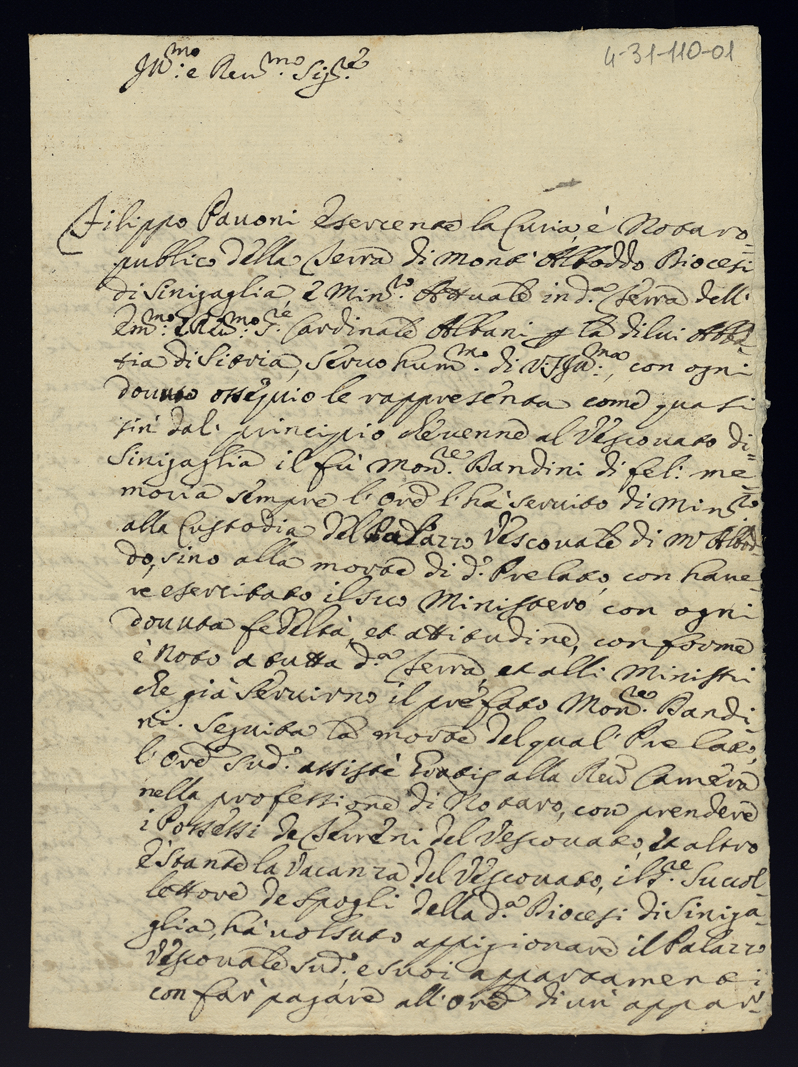 4-31-110-01
Ill.mo e Reu.mo Sig.re
Filippo Pauoni Esercente la Curia è Notaro
publico della Serra di Mont'Alboddo Diocesi
di Sinigaglia, e Min.ro Attuale in d.a Serra dell'
Em.mo e R.mo S.r Cardinale Albani p la di lui Abba=
tia di Sitria, seruo hum.mo di V.S. Ill.ma, con ogni
douuto ossequio le rappresenta come quasi
sin' dal' principio che uenne al Vescouato di=
Sinigaglia il fù Mon.re Bandini di fel: me=
moria sempre l'Ore l'hà seruito di Min.ro
alla Custodia del Palazzo Vescouale di M. Albod=
do, sino alla morte di d.o Prelato, con haue=
re esercitato il suo Ministero con ogni
douuta fedeltà, et attitudine, conforme
è noto a tutta d.a Serra, et alli Ministri
che già seruirno il prefato Mon.re Bandi
ni. Seguita la morte del qual' Prelato,
l'Ore sud.o assistè gratis alla Reu. Camera
nella professione di Notaro, con prendere
i Possessi de Terreni del Vescouato, et altro
E stante la Vacanza del Vescouato, il S.re Succol=
lettore de spogli della d.a Diocesi di Siniga=
glia, hà uolsuto appigionare il Palazzo
Vescouale sud.o, e suoi appartamenti
con far' pagare all'Ore di un' appar=